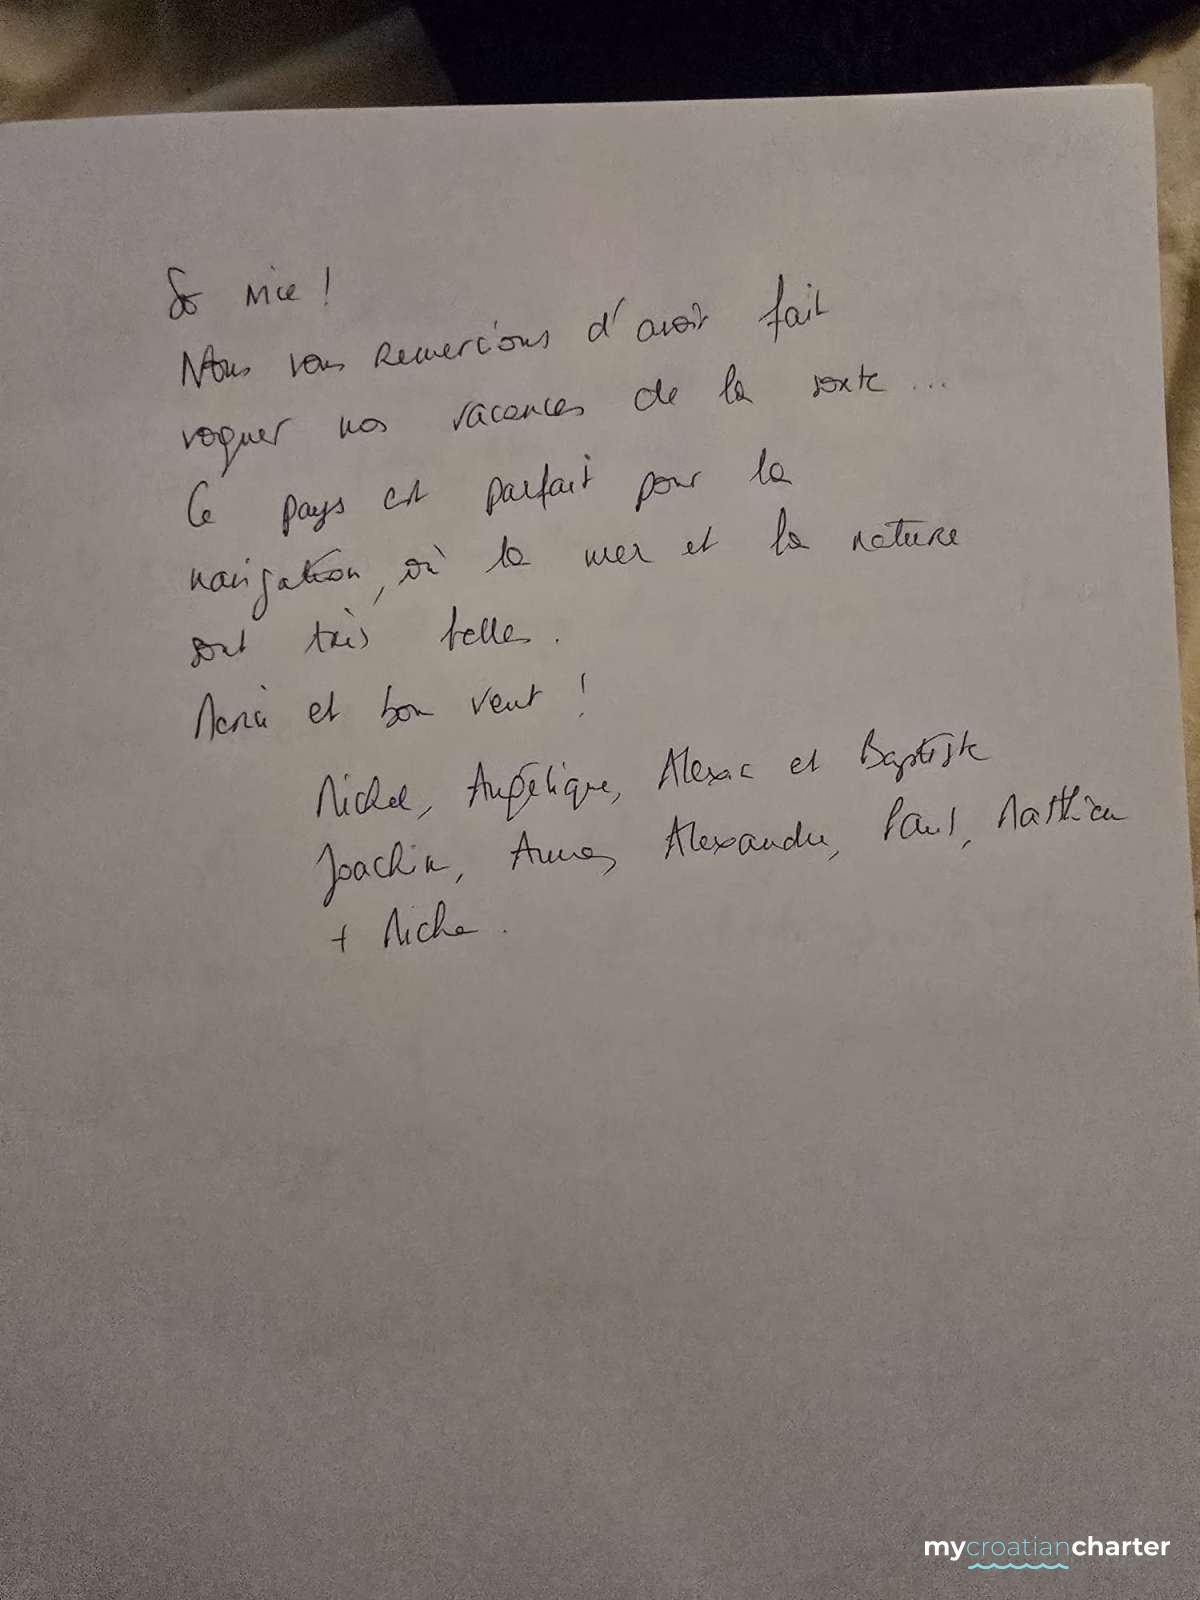 So nice !
Nous vous remercions d'avoir fait
voguer nos vacances de la sorte ...
Ce pays est parfait pour la
navigation, où la mer et la nature
sont très belles.
Merci et bon vent !
Michel, Angélique, et Baptiste
Joachim, Alexandre, Paul, Matthieu
+ Micha.
mycroatiancharter